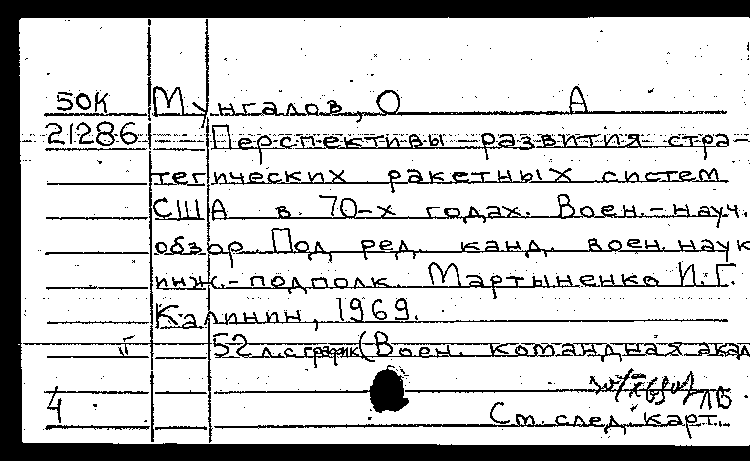 50К Мунгалов, О А
21286 Перспективы развития стра-
тегических ракетных систем
США в 70-х годах. Воен.-науч.
обзор. Под ред. канд. воен. наук
инж.-подполк. Мартыненко И.Г.
Калинин, 1969.
52 л. с график (Воен. командная акад
4 ЛВ
См. след. карт.